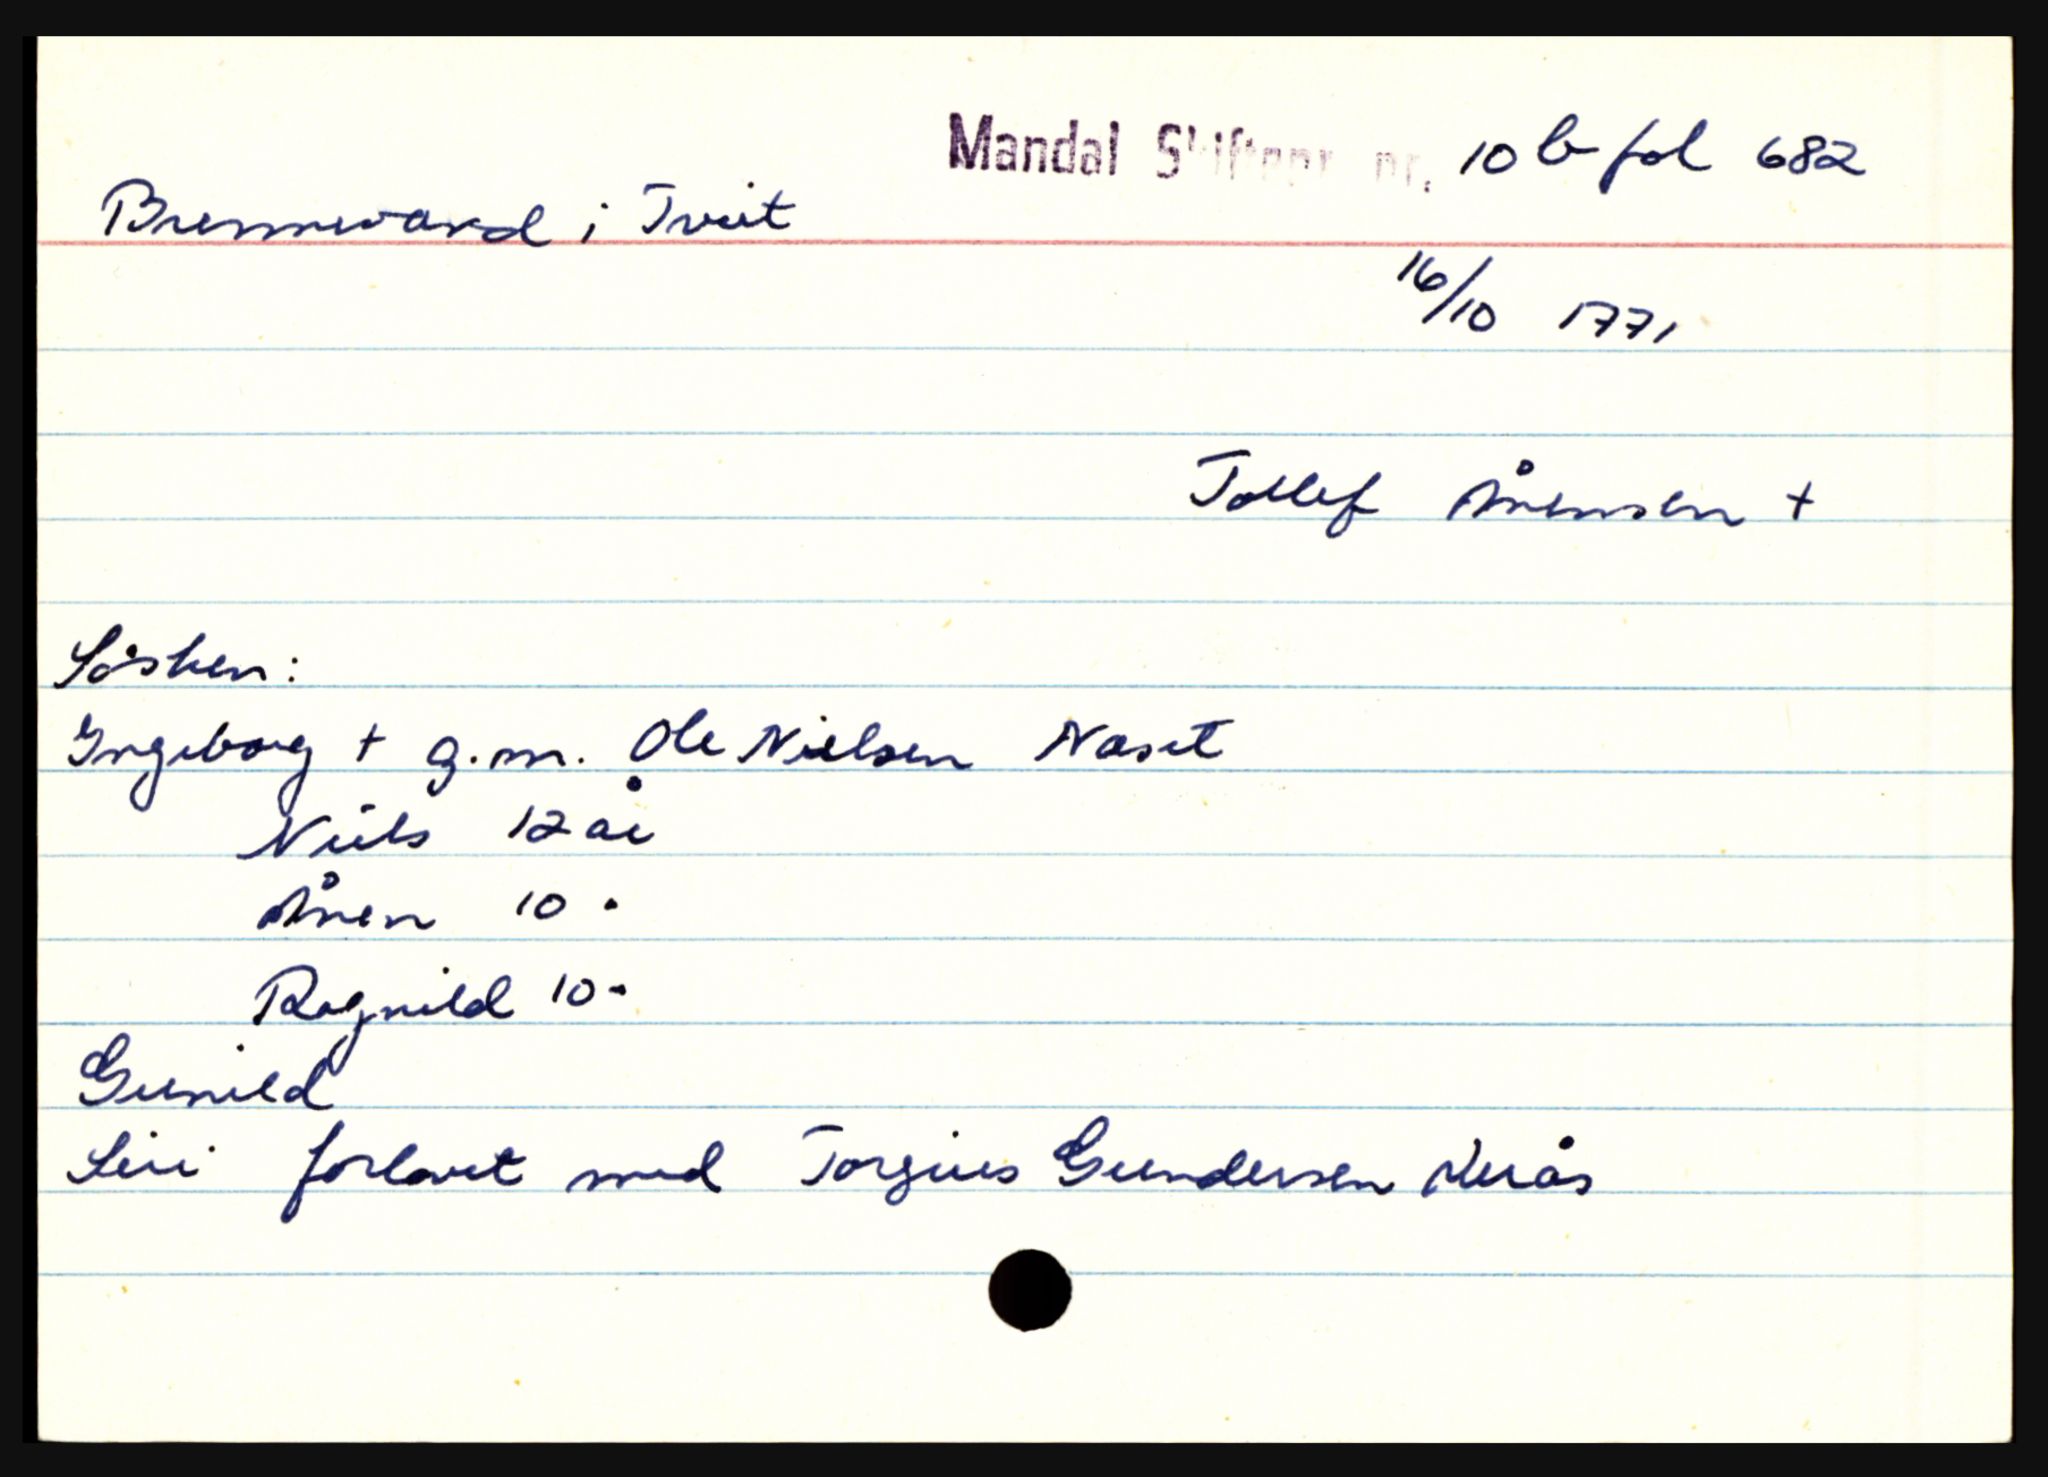 Mandal Skiftepr. nr. 10 b fol 682
Brennevand i Tveit
16/10 1771
Tollef Ånensen +
Søsken:
Ingeborg + g.m. Ole Nielsen Næset
Niels 12 år
Ånen 10 -
Ragnild 10 -
Gunild
Siri forlovet med Torgius Gundersen Verås